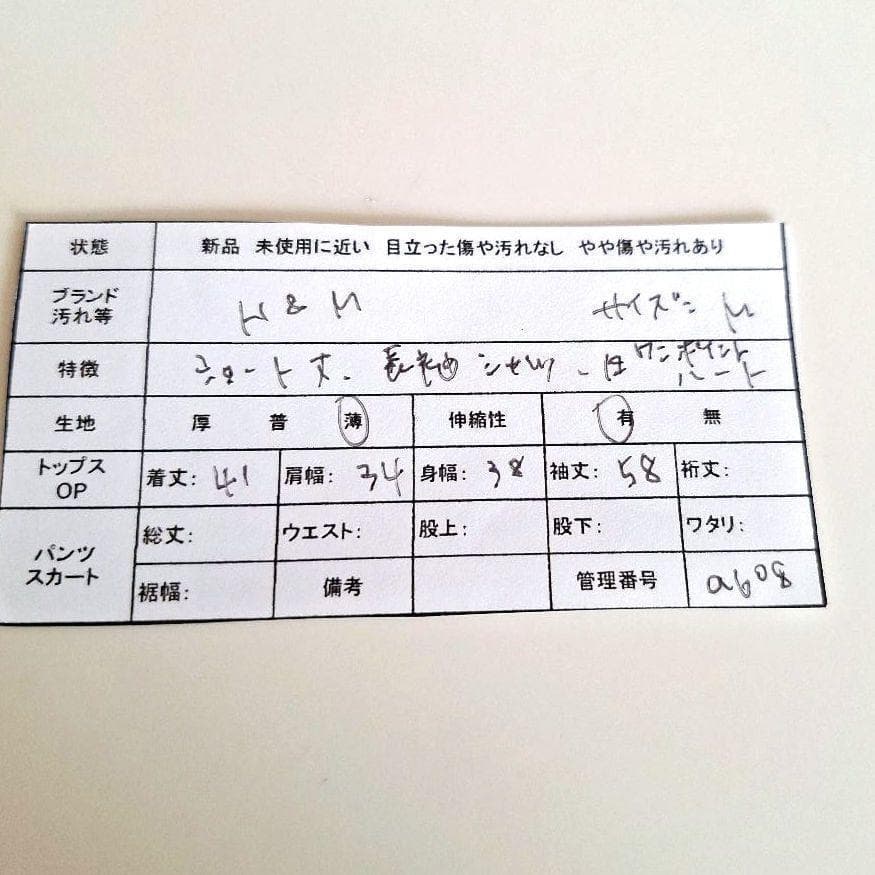 状態 新品 未使用に近い 目立った傷や汚れなし やや傷や汚れあり
ブランド
汚れ等 H & M サイズ: M
特徴 ショート丈、長袖シャツ、 ワンポイント
ハート
生地 厚 普 薄 伸縮性 有 無
トップス
OP 着丈: 41 肩幅: 34 身幅: 38 袖丈: 58 裄丈:
パンツ
スカート 総丈: ウエスト: 股上: 股下: ワタリ:
裾幅: 備考 管理番号 a608